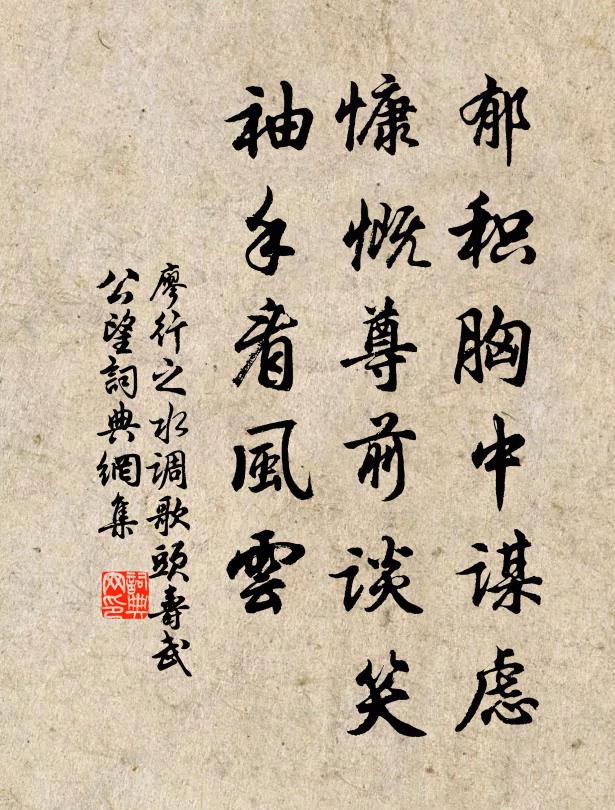 郁积胸中谋虑
慷慨尊前谈笑
袖手看風雲
廖行之水调歌頭壽武
公望詞典網集
詞典
网印